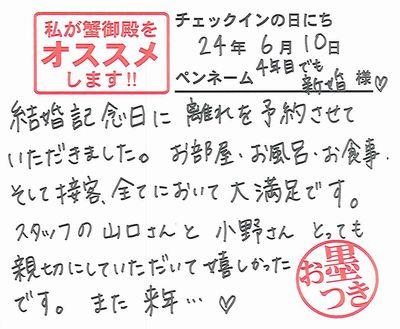 私が蟹御殿を
オススメ
します!!
チェックインの日にち
24年 6月 10日
ペンネーム 4年目でも新婚 様♡
結婚記念日に 離れを予約させて
いただきました。 お部屋・お風呂・お食事・
そして接客、全てにおいて 大満足です。
スタッフの山口さんと 小野さん とっても
親切にしていただいて 嬉しかった
です。 また 来年… ♡
お墨つき